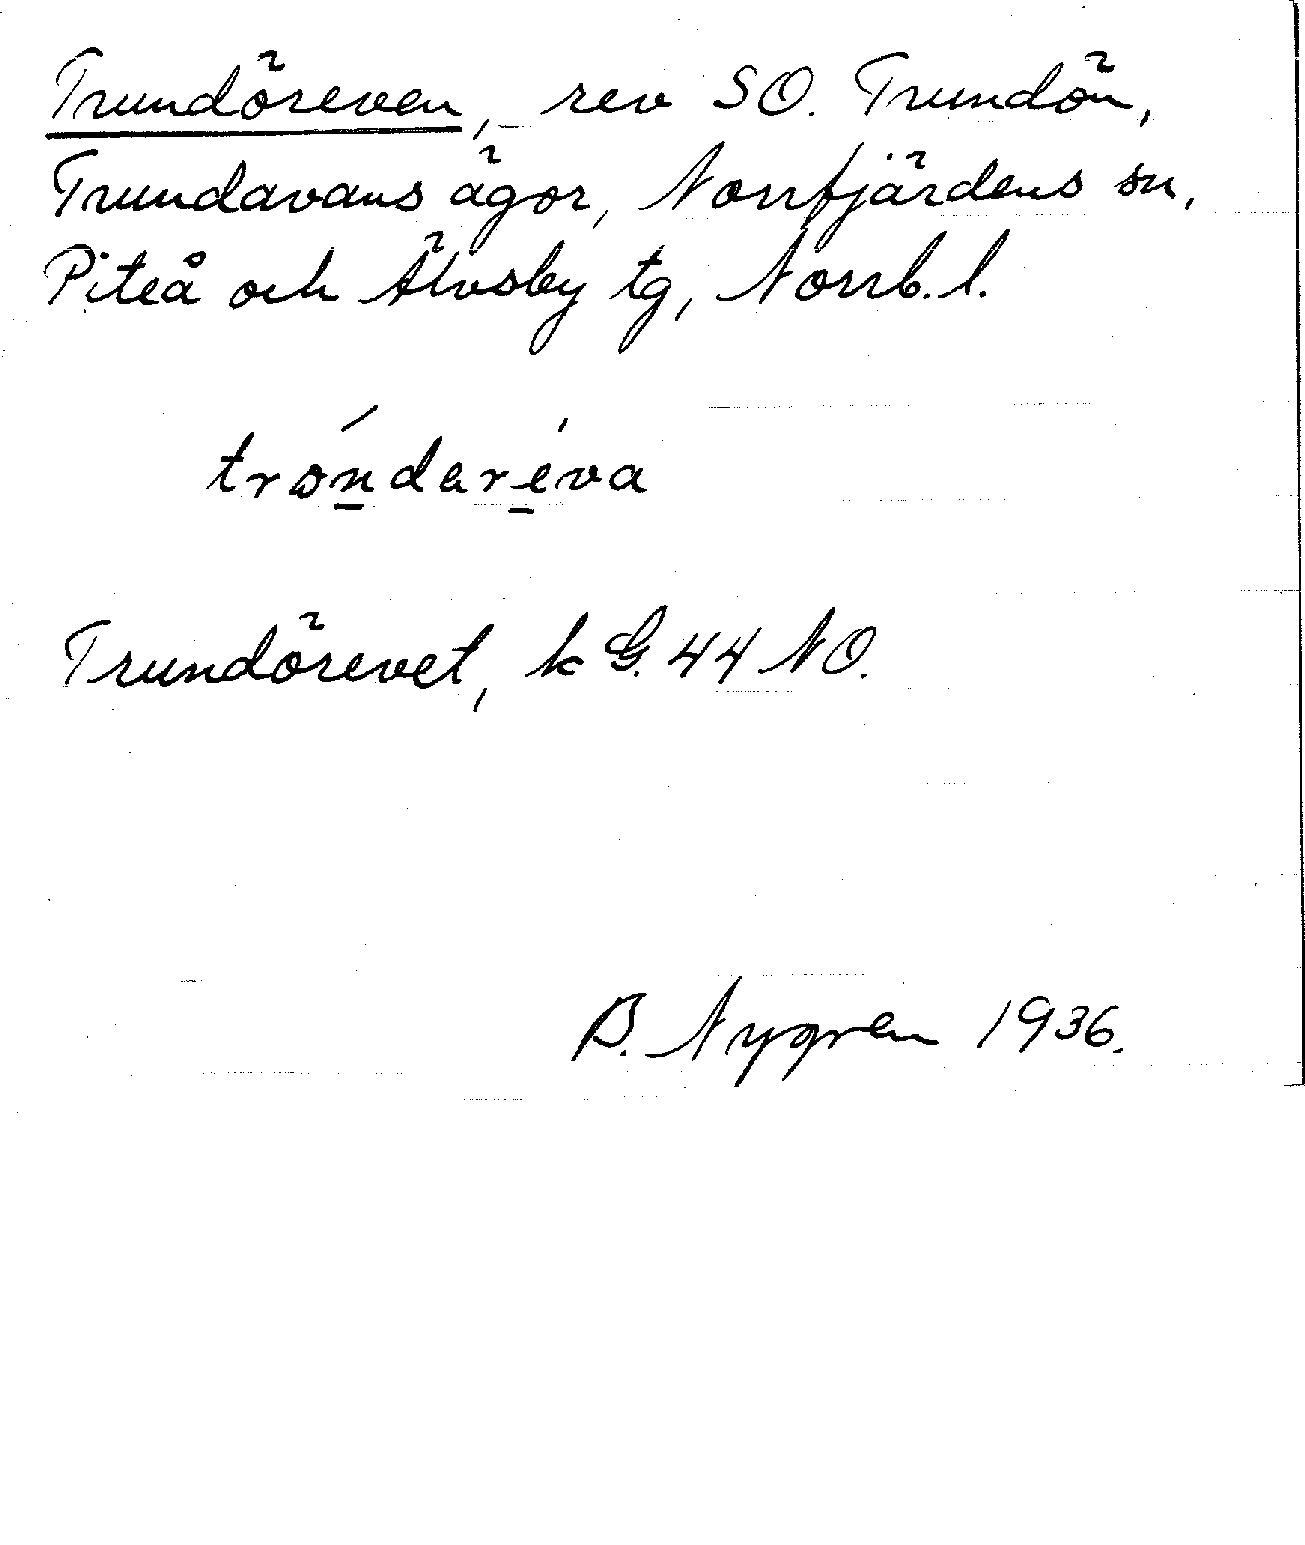 Trundöreven, rev SO. Trundön,
Trundavans ägor, Norrfjärdens sn,
Piteå och Älvsby tg, Norrb. l.
tróndaréva
Trundörevet, k G. 44 NO.
B. Nygren 1936.